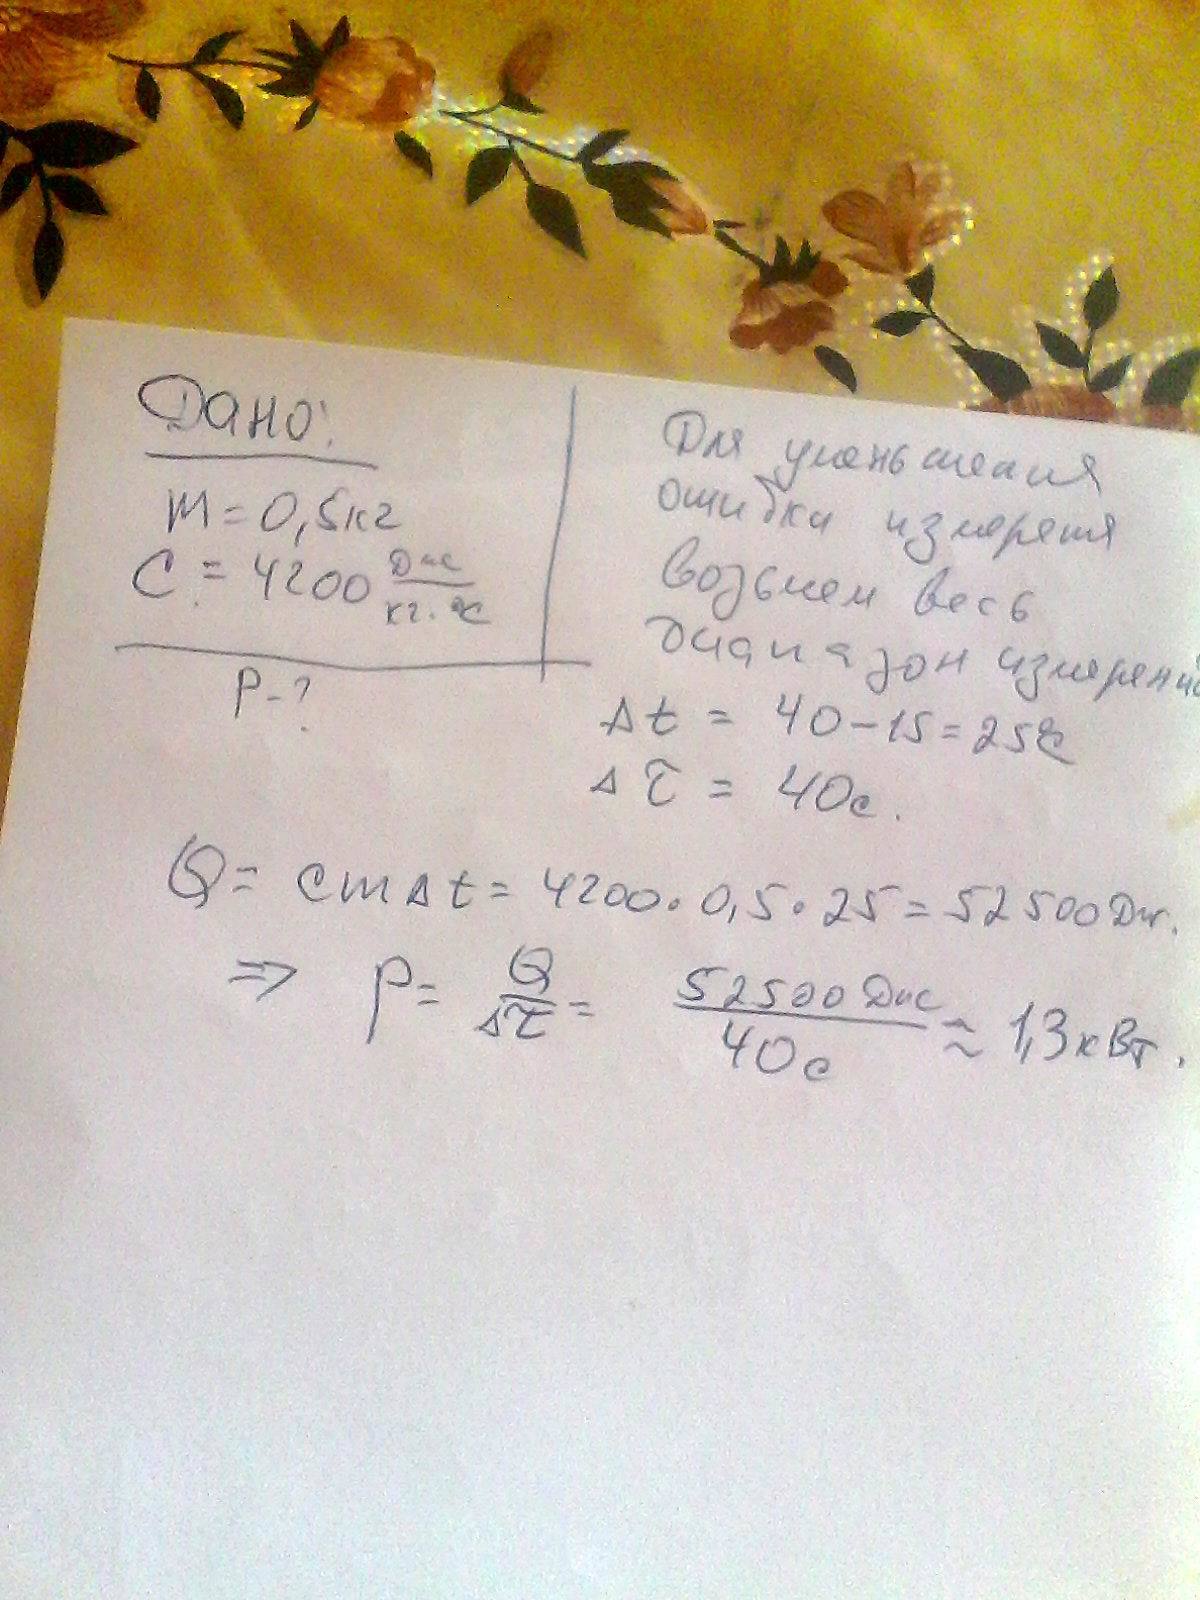 Дано:
m = 0,5 кг
C = 4200 Дж/кг·°C
P - ?
Для уменьшения
ошибки измерения
возьмем весь
диапазон измерени
Δt = 40 - 15 = 25°C
Δτ = 40с.
Q = cmΔt = 4200 · 0,5 · 25 = 52500 Дж.
⇒ P = Q/Δτ = 52500 Дж/40с ≈ 1,3 кВт.